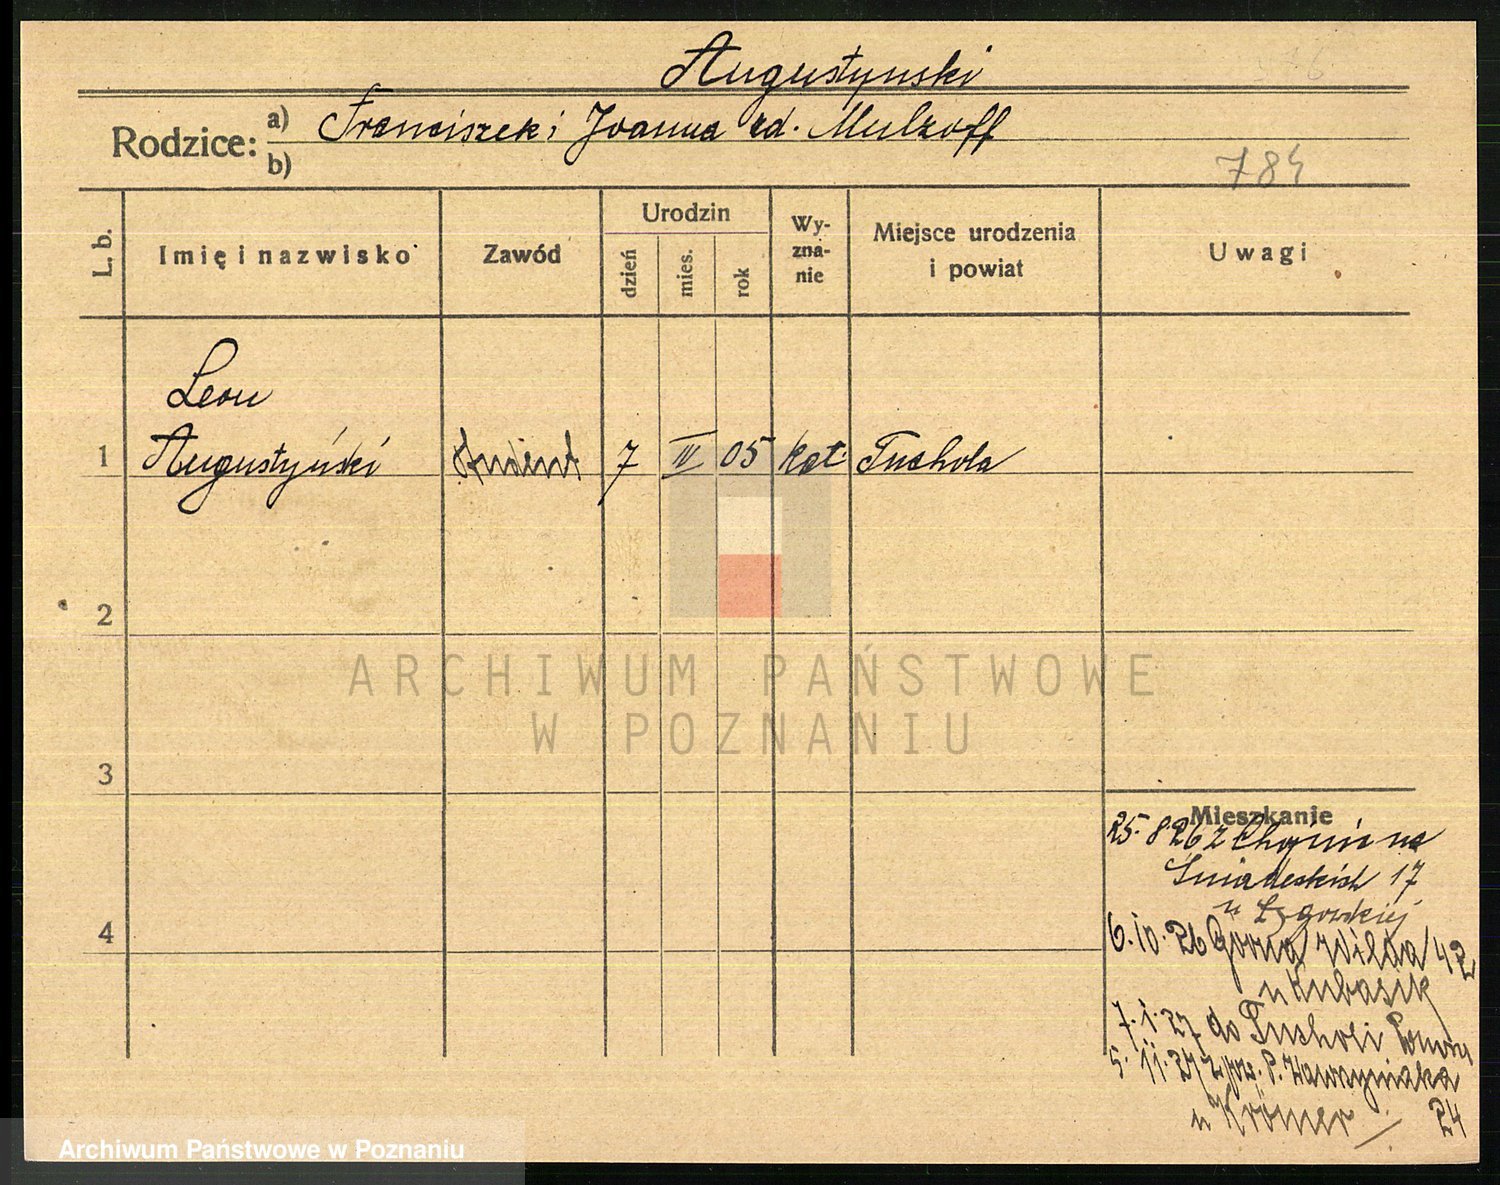 Augustynski
Rodzice: a) Franciszek i Joanna zd. Mulzoff
b)
784
L. b. Imię i nazwisko Zawód Urodzin dzień mies. rok Wy-zna-nie Miejsce urodzenia i powiat Uwagi
Leon
1 Augustyński student 7 III 05 kat. Tuchola
2
ARCHIWUM PAŃSTWOWE
W POZNANIU
3
Mieszkanie
25. 8 26 z Chojnic na
Śniadeckich 17
u
4
6. 10. 26 Górna Wilda 42
u Kubasik
7. 1. 27 do Tucholi
5. 11. 27 z P. Wawrzyniaka
u Krömer 24
Archiwum Państwowe w Poznaniu